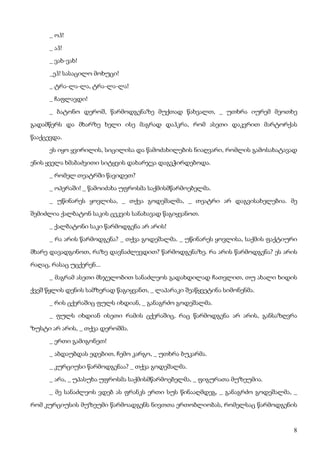 _ ოჰ!
_ აჰ!
_ ვახ-ვახ!
_ეჰ! სასაცილო მოხუცი!
_ ტრა-ლა-ლა, ტრა-ლა-ლა!
_ ჩაფლავდი!
_ ბატონო დერომ, წარმოდგენაზე მუქთად წახვალთ, _ უთხრა იურემ მეოთხე
გადამწერს და მხარზე ხელი ისე მაგრად დაჰკრა, რომ ასეთი დაკვრით მარტორქას
წააქცევდა.
ეს იყო ყვირილის, სიცილისა და წამოძახილების ნიაღვარი, რომლის გამოსახატავად
ენის ყველა ხმაბაძვითი სიტყვის დახარჯვა დაგვჭირდებოდა.
_ რომელ თეატრში წავიდეთ?
_ ოპერაში! _ წამოიძახა უფროსმა საქმისმწარმოებელმა.
_ უწინარეს ყოვლისა, _ თქვა გოდემალმა, _ თეატრი არ დაგვისახელებია. მე
შემიძლია ქალბატონ საკის ცეკვის სანახავად წაგიყვანოთ.
_ ქალბატონი საკი წარმოდგენა არ არის!
_ რა არის წარმოდგენა? _ თქვა გოდემალმა. _ უწინარეს ყოვლისა, საქმის ფაქტიური
მხარე დავადგინოთ, რაზე დავნაძლევდით? წარმოდგენაზე. რა არის წარმოდგენა? ეს არის
რაღაც, რასაც უცქერენ...
_ მაგრამ ასეთი მსჯელობით სანაძლეოს გადახდილად ჩათვლით, თუ ახალი ხიდის
ქვეშ წყლის დენის საშზერად წაგიყვანთ, _ ლაპარაკი შეაწყვეტინა სიმონენმა.
_ რის ცქერაშიც ფულს იხდიან, _ განაგრძო გოდემალმა.
_ ფულს იხდიან ისეთი რამის ცქერაშიც, რაც წარმოდგენა არ არის, განსაზღვრა
ზუსტი არ არის, _ თქვა დერომმა.
_ ერთი გამიგონეთ!
_ აბდაუბდას ედებით, ჩემო კარგო, _ უთხრა ბუკარმა.
_ კურციუსი წარმოდგენაა? _ თქვა გოდემალმა.
_ არა, _ უპასუხა უფროსმა საქმისმწარმოებელმა, _ ფიგურათა მუზეუმია.
_ მე სანაძლეოს ვდებ ას ფრანკს ერთი სუს წინააღმდეგ, _ განაგრძო გოდემალმა, _
რომ კურციუსის მუზეუმი წარმოადგენს ნივთთა ერთობლიობას, რომელსაც წარმოდგენის
8